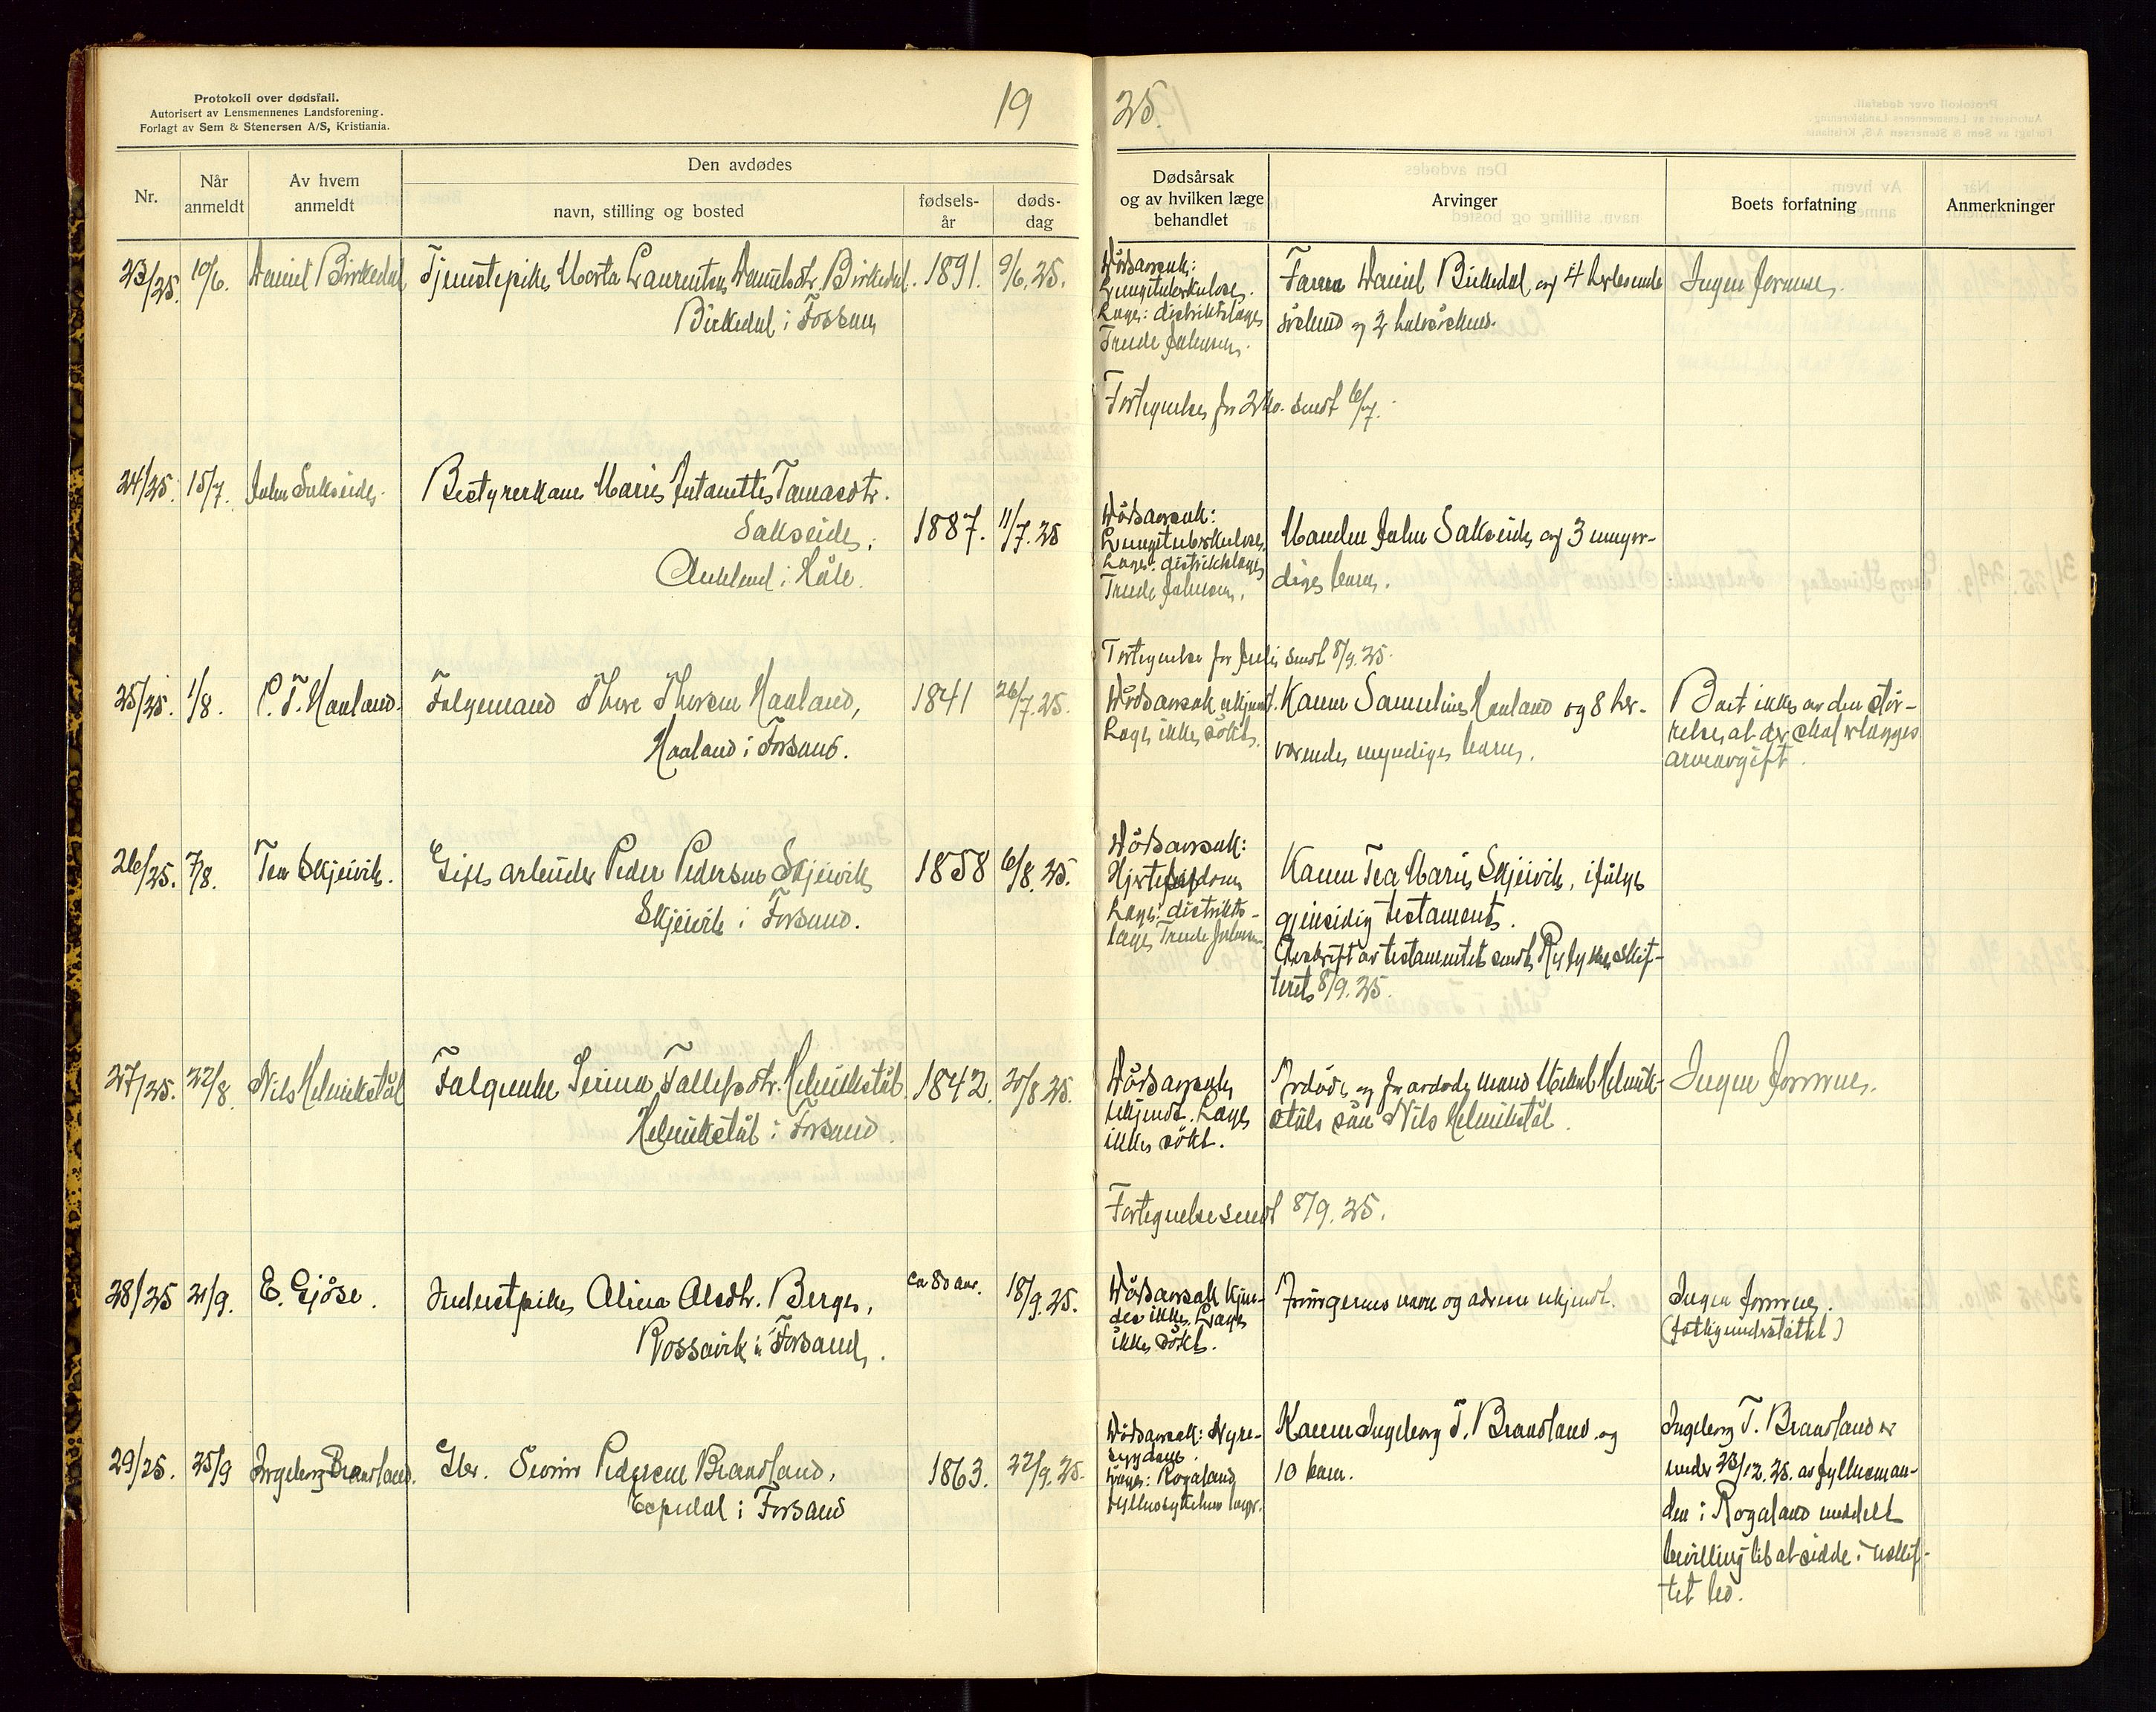 Protokoll over dødsfall.
Autorisert av Lensmennenes Landsforening.
Forlagt av Sem & Stenersen A/S, Kristiania.
19 25.
Nr.
Når anmeldt
Av hvem anmeldt
Den avdødes
navn, stilling og bosted
fødsels-år
døds-dag
Dødsårsak
og av hvilken læge
behandlet
Arvinger
Boets forfatning
Anmerkninger
23/25. 10/6. Daniel Birkedal Tjenestepike Marta Laurentse Danielsdtr. Birkedal. 1891. 9/6.25.
Birkedal i Fossan
Dødsaarsak:
Lungetuberkulose.
Læge: distriktslæge
Trude Johnsen.
Faren Daniel Birkedal og 4 helsøskende
søskend og 2 halvsøskend.
Ingen formue.
Fortegnelse for 2 kv. sendt 6/7.
24/25. 15/7. John Sakseide. Bestyrerkone Marie Antonette Tomasdtr.
Sakseide,
i Håle.
1887. 11/7.25
Dødsaarsak:
Lungetuberkulose.
Læge: distriktslæge
Trude Johnsen.
Manden John Sakseide og 3 umyn-
dige barn.
Fortegnelse for juli sendt 8/9.25.
25/25. 1/8. P. T. Haaland. Følgemand Thore Thorsen Haaland, 1841 26/7.25.
Haaland i Forsand.
Dødsaarsak ukjendt.
Læge ikke søkt.
Kone Samueline Haaland og 8 her-
værende, myndige barn.
Boet ikke av den stør-
relse, at der skal erlægges
arveavgift.
26/25. 7/8. Tea Skjeivik. Gift arbeider Peder Pedersen Skjeivik 1858 6/8.25.
Skjeivik i Forsand.
Dødsaarsak:
Hjertesygdom
Læge: distrikts-
læge Trude Johnsen.
Kone Tea Marie Skjeivik, ifølge
gjensidig testament.
Avskrift av testamentet sendt Ryfylke skif-
teret 8/9.25.
27/25. 22/8. Nils Helmikstøl Følgeenke Serina Tallefsdtr. Helmikstøl. 1842. 20/8 25.
Helmikstøl i Forsand.
Dødsaarsak
ukjendt. Læge
ikke søkt.
Avdøde og før avdøde mand Mikal Helmik-
støls søn Nils Helmikstøl.
Ingen formue.
Fortegnelse sendt 8/9.25.
28/25 21/9. E. Gjøse. Inderstpike Alina Alsdtr. Berge, ca 80 aar. 18/9.25.
Rossavik i Forsand.
Dødsaarsak kjen-
des ikke. Læge
ikke søkt.
Arvingernes navn og adresse ukjendt.
Ingen formue.
(fattigunderstøttet)
29/25. 25/9 Ingeborg Brandland. Gbr. Sevrin Pedersen Brandland, 1863. 22/9.25.
Espedal i Forsand
Dødsaarsak: Nyre-
sygdom.
Læge: Rogaland
fylkessykehus læge.
Kone Ingeborg T. Brandland og
10 barn.
Ingeborg T. Brandland er
under 23/12.25. av fylkesman-
den i Rogaland meddelt
bevilling til at sidde i uskif-
tet bo.